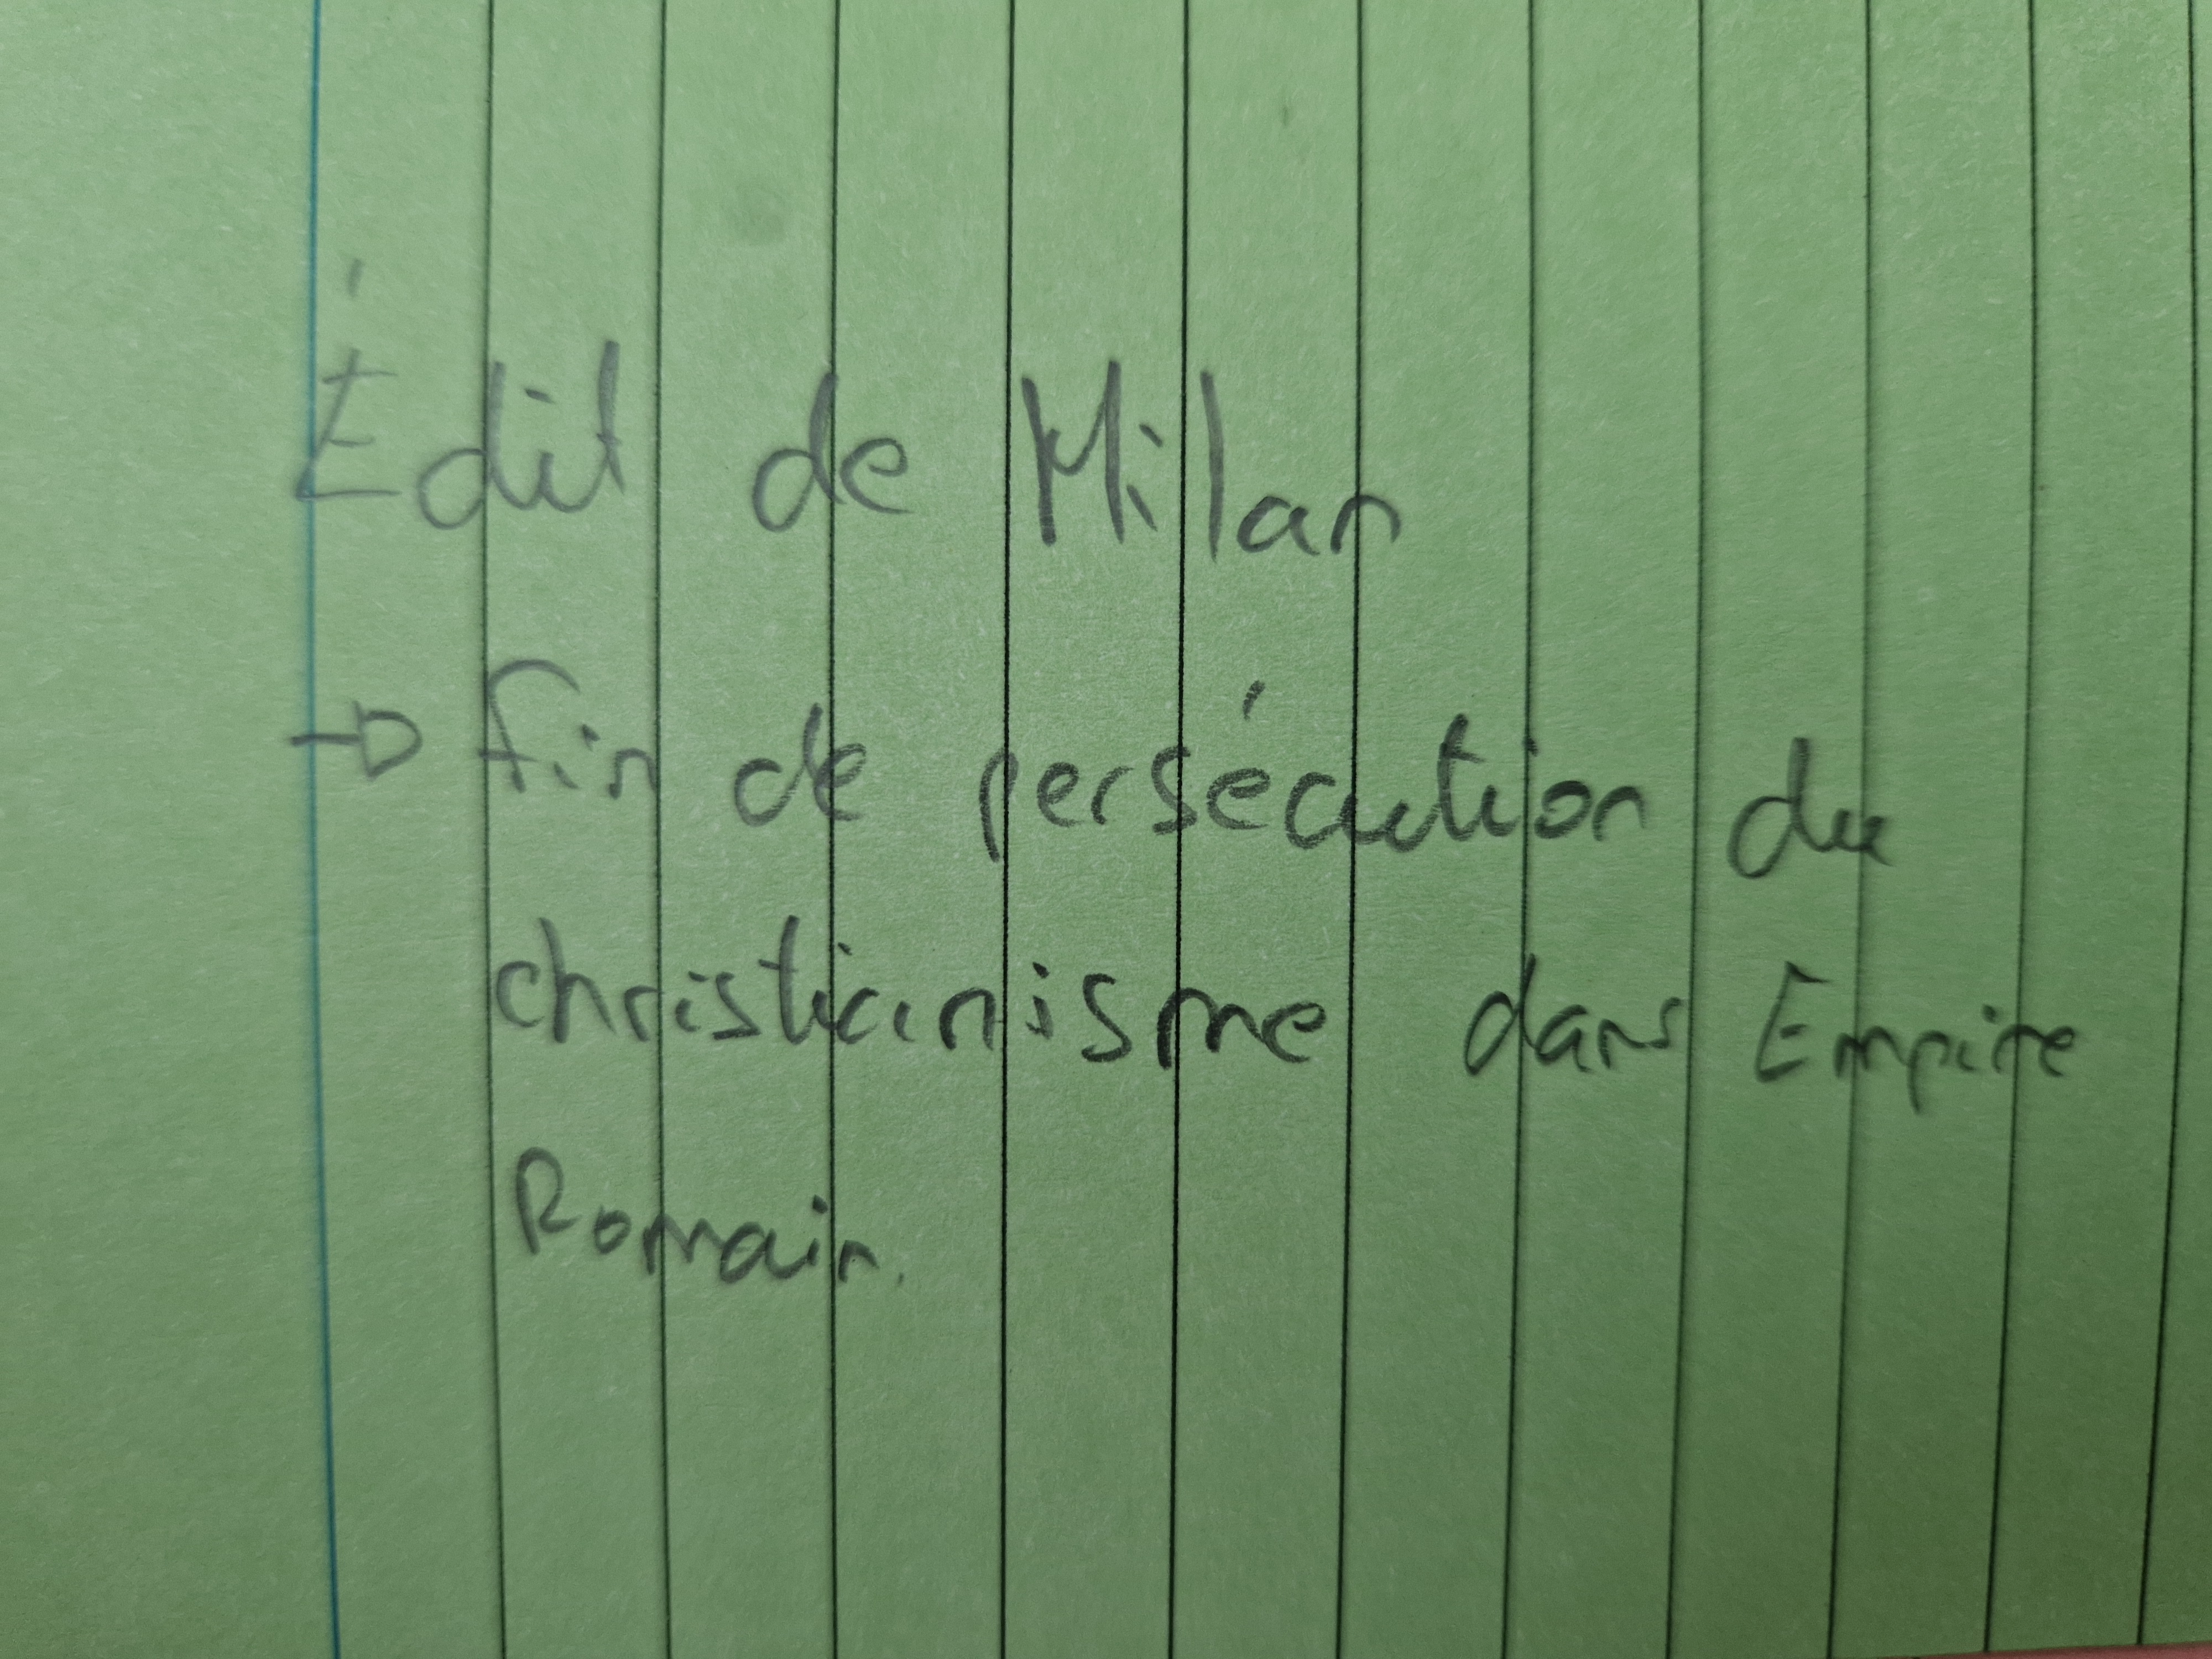 Édit de Milan
→ fin de persécution du
christianisme dans Empire
Romain.